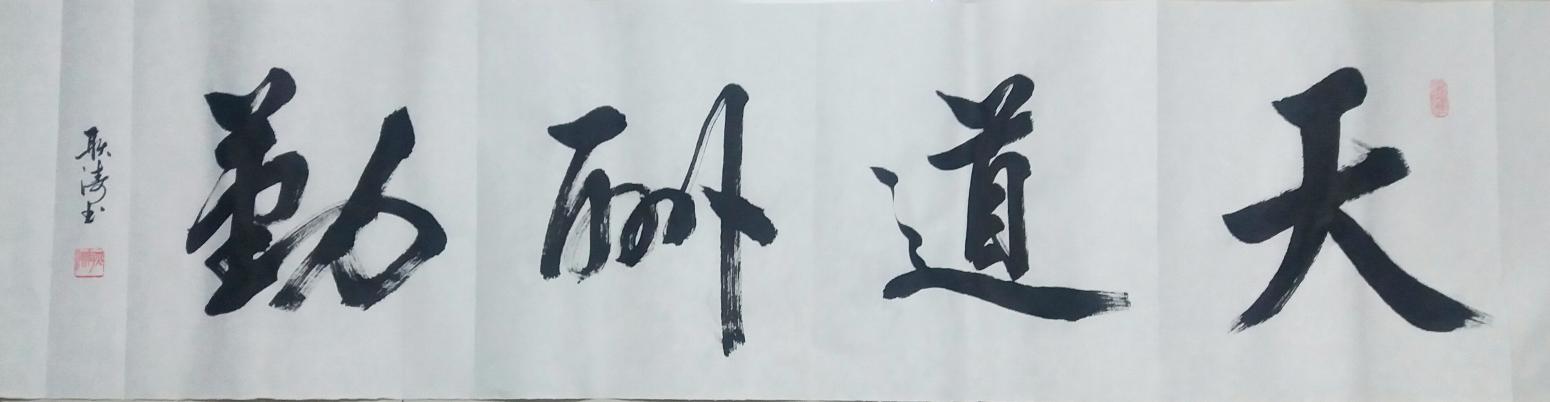 天道酬勤
联涛书